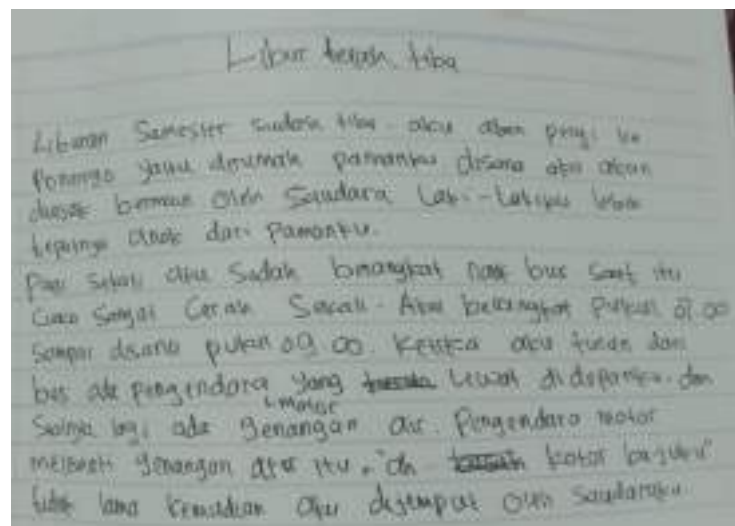 Libur telah tiba
Liburan Semester sudah tiba. aku akan pergi ke
Ponorogo yaitu dirumah pamanku disana aku akan
diajak bermain oleh Saudara Laki-Lakiku lebih
tepatnya anak dari Pamanku.
Pagi Sekali aku Sudah berangkat naik bus Saat itu
Cuaca Sangat Cerah Sekali. Aku berangkat Pukul 07.00
Sampai disana pukul 09.00. Ketika aku turun dari
bus ada pengendara motor yang Lewat didepanku. dan
Sialnya lagi ada genangan air. Pengendara motor
melewati genangan air itu. "ah kotor bajuku"
tidak lama kemudian aku dijemput oleh Saudaraku.